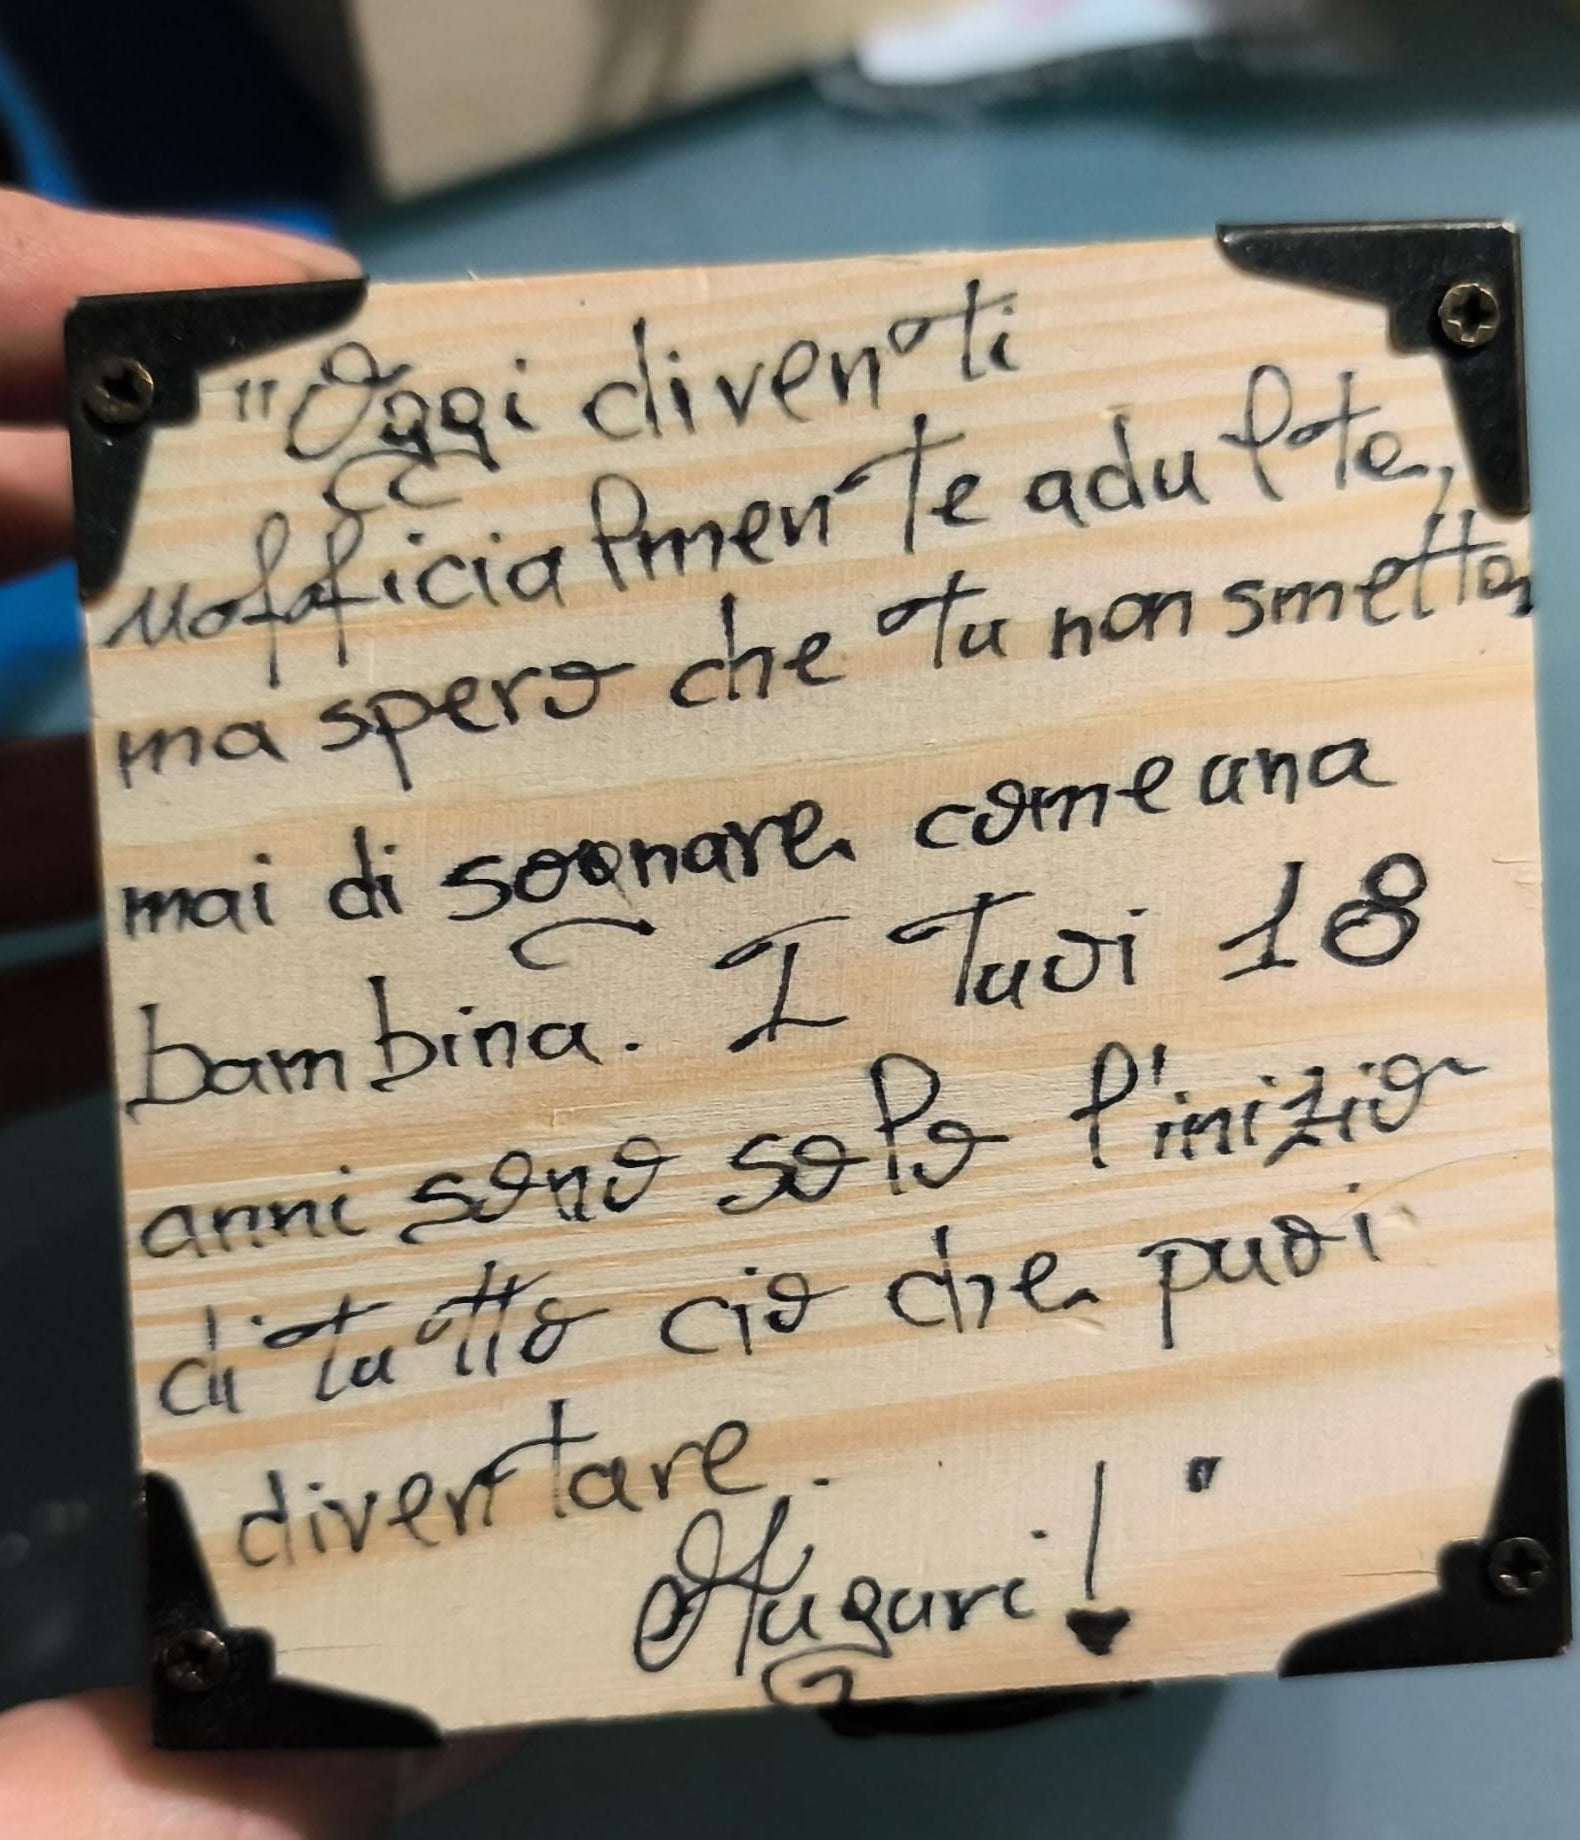 "Oggi diventi
ufficialmente adulta,
ma spero che tu non smetta
mai di sognare come una
bambina. I tuoi 18
anni sono solo l'inizio
di tutto cio che puoi
diventare.
Auguri!"